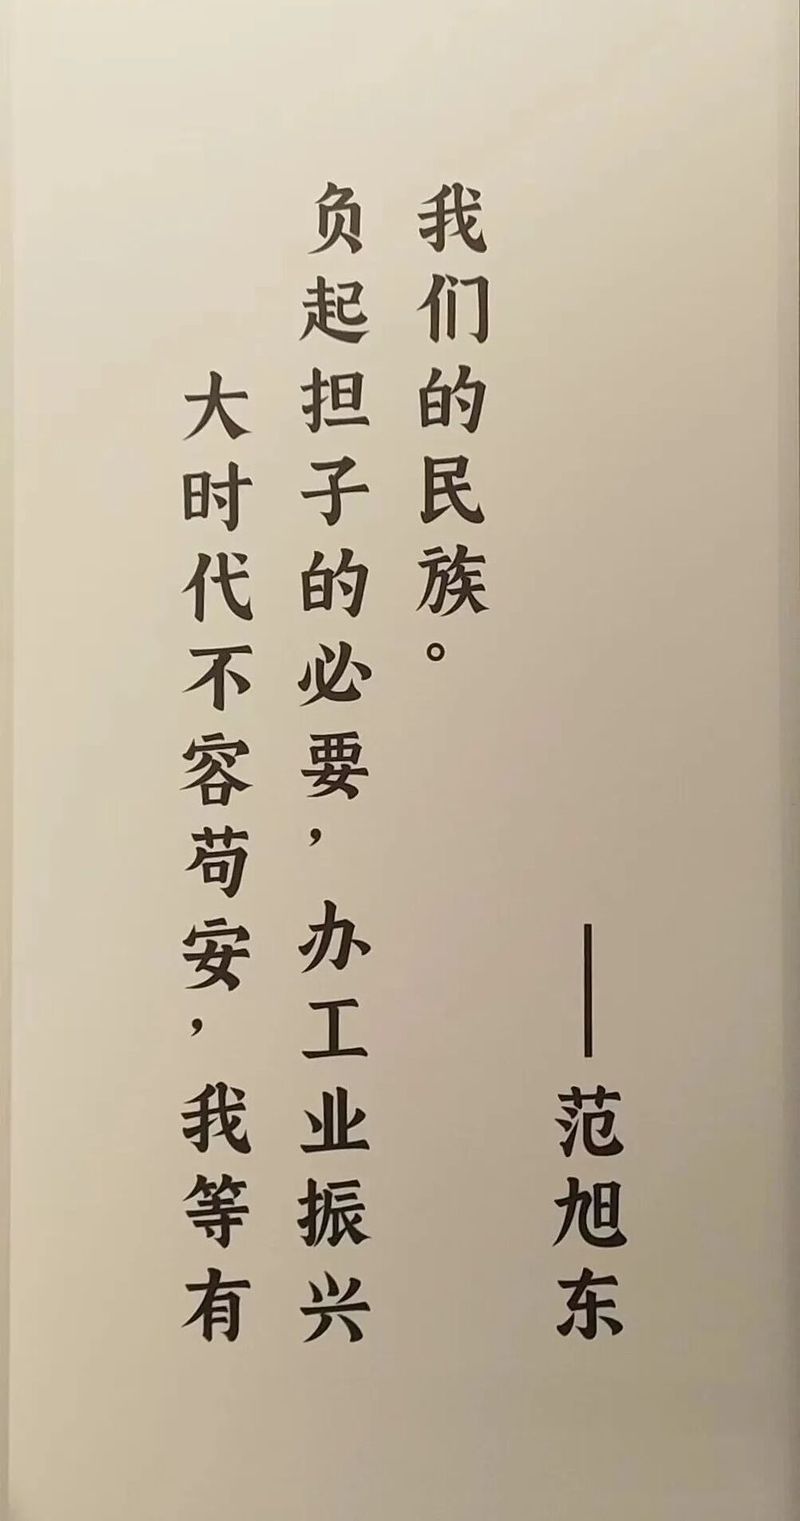 大时代不容苟安，我等有
负起担子的必要，办工业振兴
我们的民族。
——范旭东